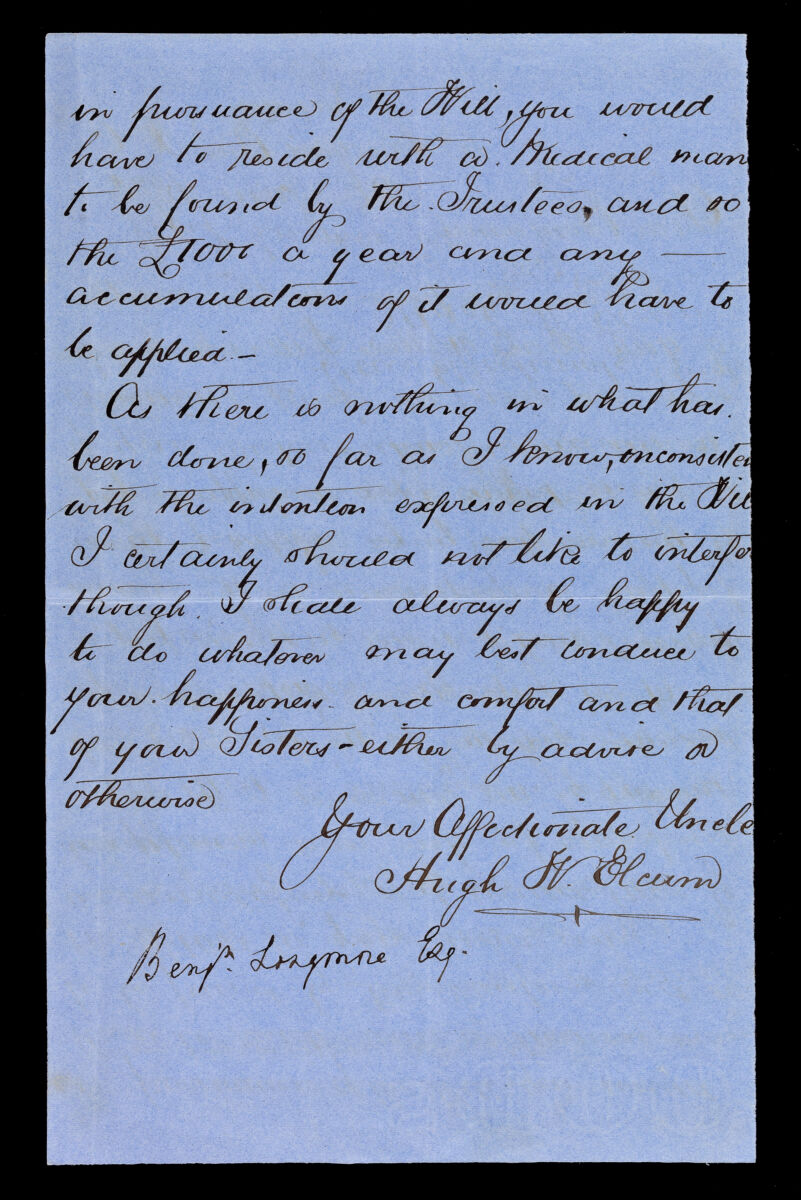 in pursuance of the Will, you would
have to reside with a Medical man
to be found by the Trustees, and so
the £1000 a year and any —
accumulations of it would have to
be applied. —
As there is nothing in what has
been done, so far as I know, inconsisten
with the intention expressed in the Will
I certainly should not like to interfe
though I shall always be happy
to do whatever may best conduce to
your happiness and comfort and that
of your Sisters - either by advise or
otherwise
Your Affectionate Uncle
Hugh W. Elcum
Benjn. Longmore Esq.